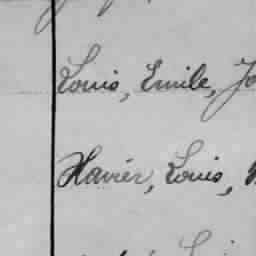 Louis, Emile,
Xavier, Louis,